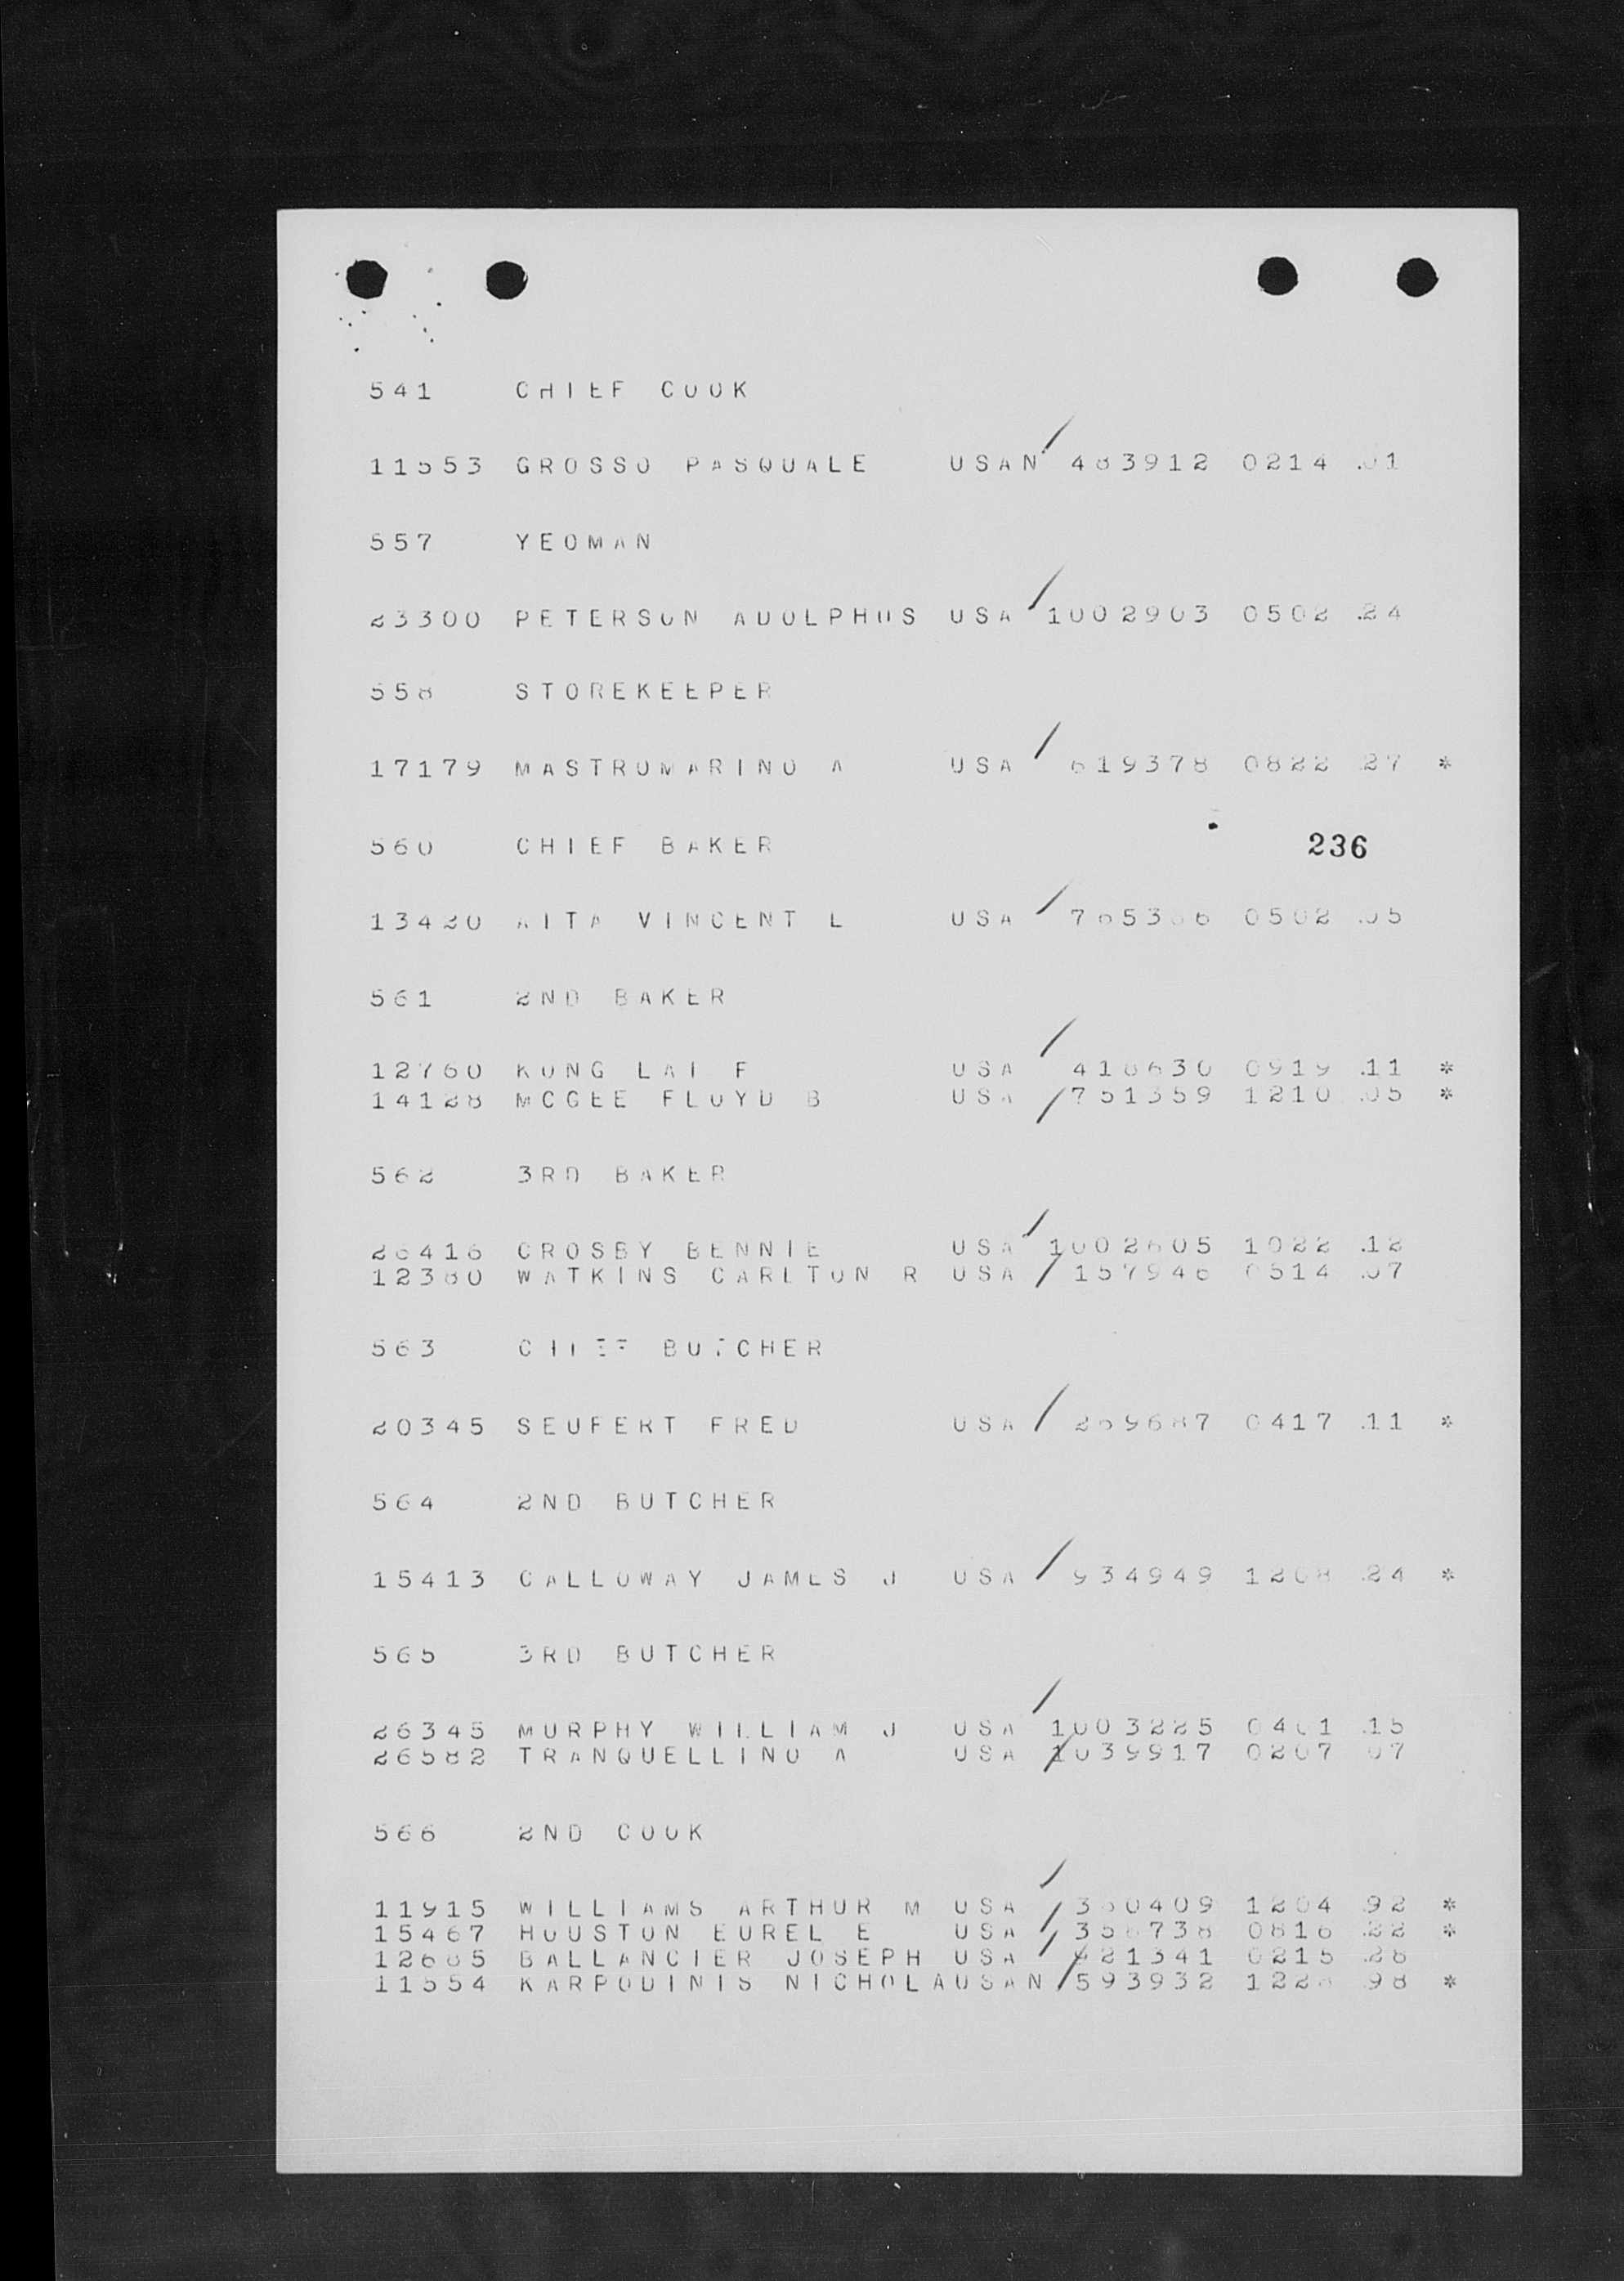 541 CHIEF COOK
11553 GROSSO PASQUALE USAN 483912 0214 .01
557 YEOMAN
23300 PETERSON ADOLPHUS USA 1002903 0502 .24
558 STOREKEEPER
17179 MASTROMARINO A USA 619378 0822 27 *
560 CHIEF BAKER 236
13420 AITA VINCENT L USA 0502 .05
561 2ND BAKER
12760 KONG LAI F USA 0919 .11 *
14128 MCGEE FLOYD B USA 751359 1210 .05 *
562 3RD BAKER
26416 CROSBY BENNIE USA 1002605 1022 .12
12380 WATKINS CARLTON R USA 157946 0514 .07
563 CHIEF BUTCHER
20345 SEUFERT FRED USA 269687 0417 .11 *
564 2ND BUTCHER
15413 CALLOWAY JAMES J USA 934949 1208 .24 *
565 3RD BUTCHER
26345 MURPHY WILLIAM J USA 1003225 0401 .15
26582 TRANQUELLINO A USA 1039917 0207 07
566 2ND COOK
11915 WILLIAMS ARTHUR M USA 1204 .92 *
15467 HOUSTON EUREL E USA 0816 .22 *
12605 BALLANCIER JOSEPH USA 0215 .28
11554 KARPODINIS NICHOLAUSAN 593932 1228 .98 *